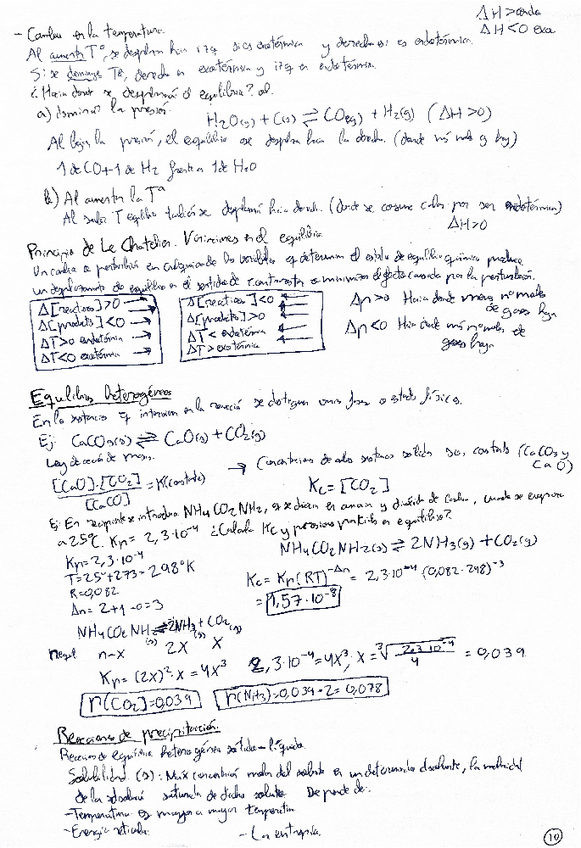 ΔH>0 endo
ΔH<0 exo
- Cambio en la temperatura
Al aumentar Tª, se desplaza hacia izq si es exotérmica y derecha si es endotérmica.
Si se disminuye Tª, derecha en exotérmica y izq en endotérmica.
¿Hacia donde se desplazará el equilibrio? al.
a) disminuir la presión:
H₂O(g) + C(s) ⇌ CO(g) + H₂(g) (ΔH>0)
Al bajar la presión, el equilibrio se desplaza hacia la derecha. (donde más moles g hay)
1 de CO + 1 de H₂ frente a 1 de H₂O
b) Al aumentar la Tª
Al subir T equilibrio también se desplaza hacia derecha. (donde se consume calor por ser endotérmica)
ΔH>0
Principio de Le Chatelier. Variaciones en el equilibrio
Un cambio o perturbación en cualquiera de las variables q determinan el estado de equilibrio químico produce
un desplazamiento de equilibrio en el sentido de contrarrestar o minimizar el efecto causado por la perturbación.
Δ[reactivos]>0 →
Δ[producto]<0 →
ΔT>0 endotérmica →
ΔT<0 exotérmica →
Δ[reactivos]<0 ←
Δ[producto]>0 ←
ΔT< endotérmica ←
ΔT> exotérmica ←
Δp>0 Hacia donde menos nº moles
de gases haya
Δp<0 Hacia donde más nº moles de
gases haya
Equilibrios heterogéneos
En las sustancias q intervienen en la reacción se distinguen varias fases o estados físicos.
Ej: CaCO₃(s) ⇌ CaO(s) + CO₂(g)
Ley de acción de masas.
[CaO]·[CO₂] / [CaCO] = K(constante)
→ Concentraciones de las sustancias sólidas son constante (CaCO₃ y
CaO)
Kc = [CO₂]
Ej: En recipiente se introduce NH₄CO₂NH₂, se disocia en amoniaco y dióxido de carbono, cuando se evapora
a 25ºC. Kp = 2,3·10⁻⁴ ¿Calcula Kc y presiones parciales en equilibrio?
NH₄CO₂NH₂(s) ⇌ 2NH₃(g) + CO₂(g)
Kp = 2,3·10⁻⁴
T = 25º + 273 = 298ºK
R = 0,082
Δn = 2+1-0 = 3
Kc = Kp(RT)^-Δn = 2,3·10⁻⁴ (0,082·298)⁻³
= 1,57·10⁻⁸
NH₄CO₂NH(s) ⇌ 2NH₃(g) + CO₂(g)
n-x 2X X
Kp = (2X)²·X = 4X³
2,3·10⁻⁴ = 4X³; X = ³√(2,3·10⁻⁴/4) = 0,039
P(CO₂) = 0,039
P(NH₃) = 0,039·2 = 0,078
Reacciones de precipitación.
Reacciones de equilibrio heterogéneo sólido-líquido.
Solubilidad (s): Max concentración molar del soluto en un determinado disolvente, la molaridad
de la disolución saturada de dicho soluto Depende de:
- Temperatura es mayor a mayor temperatura
- Energía reticular
- La entropía.
10